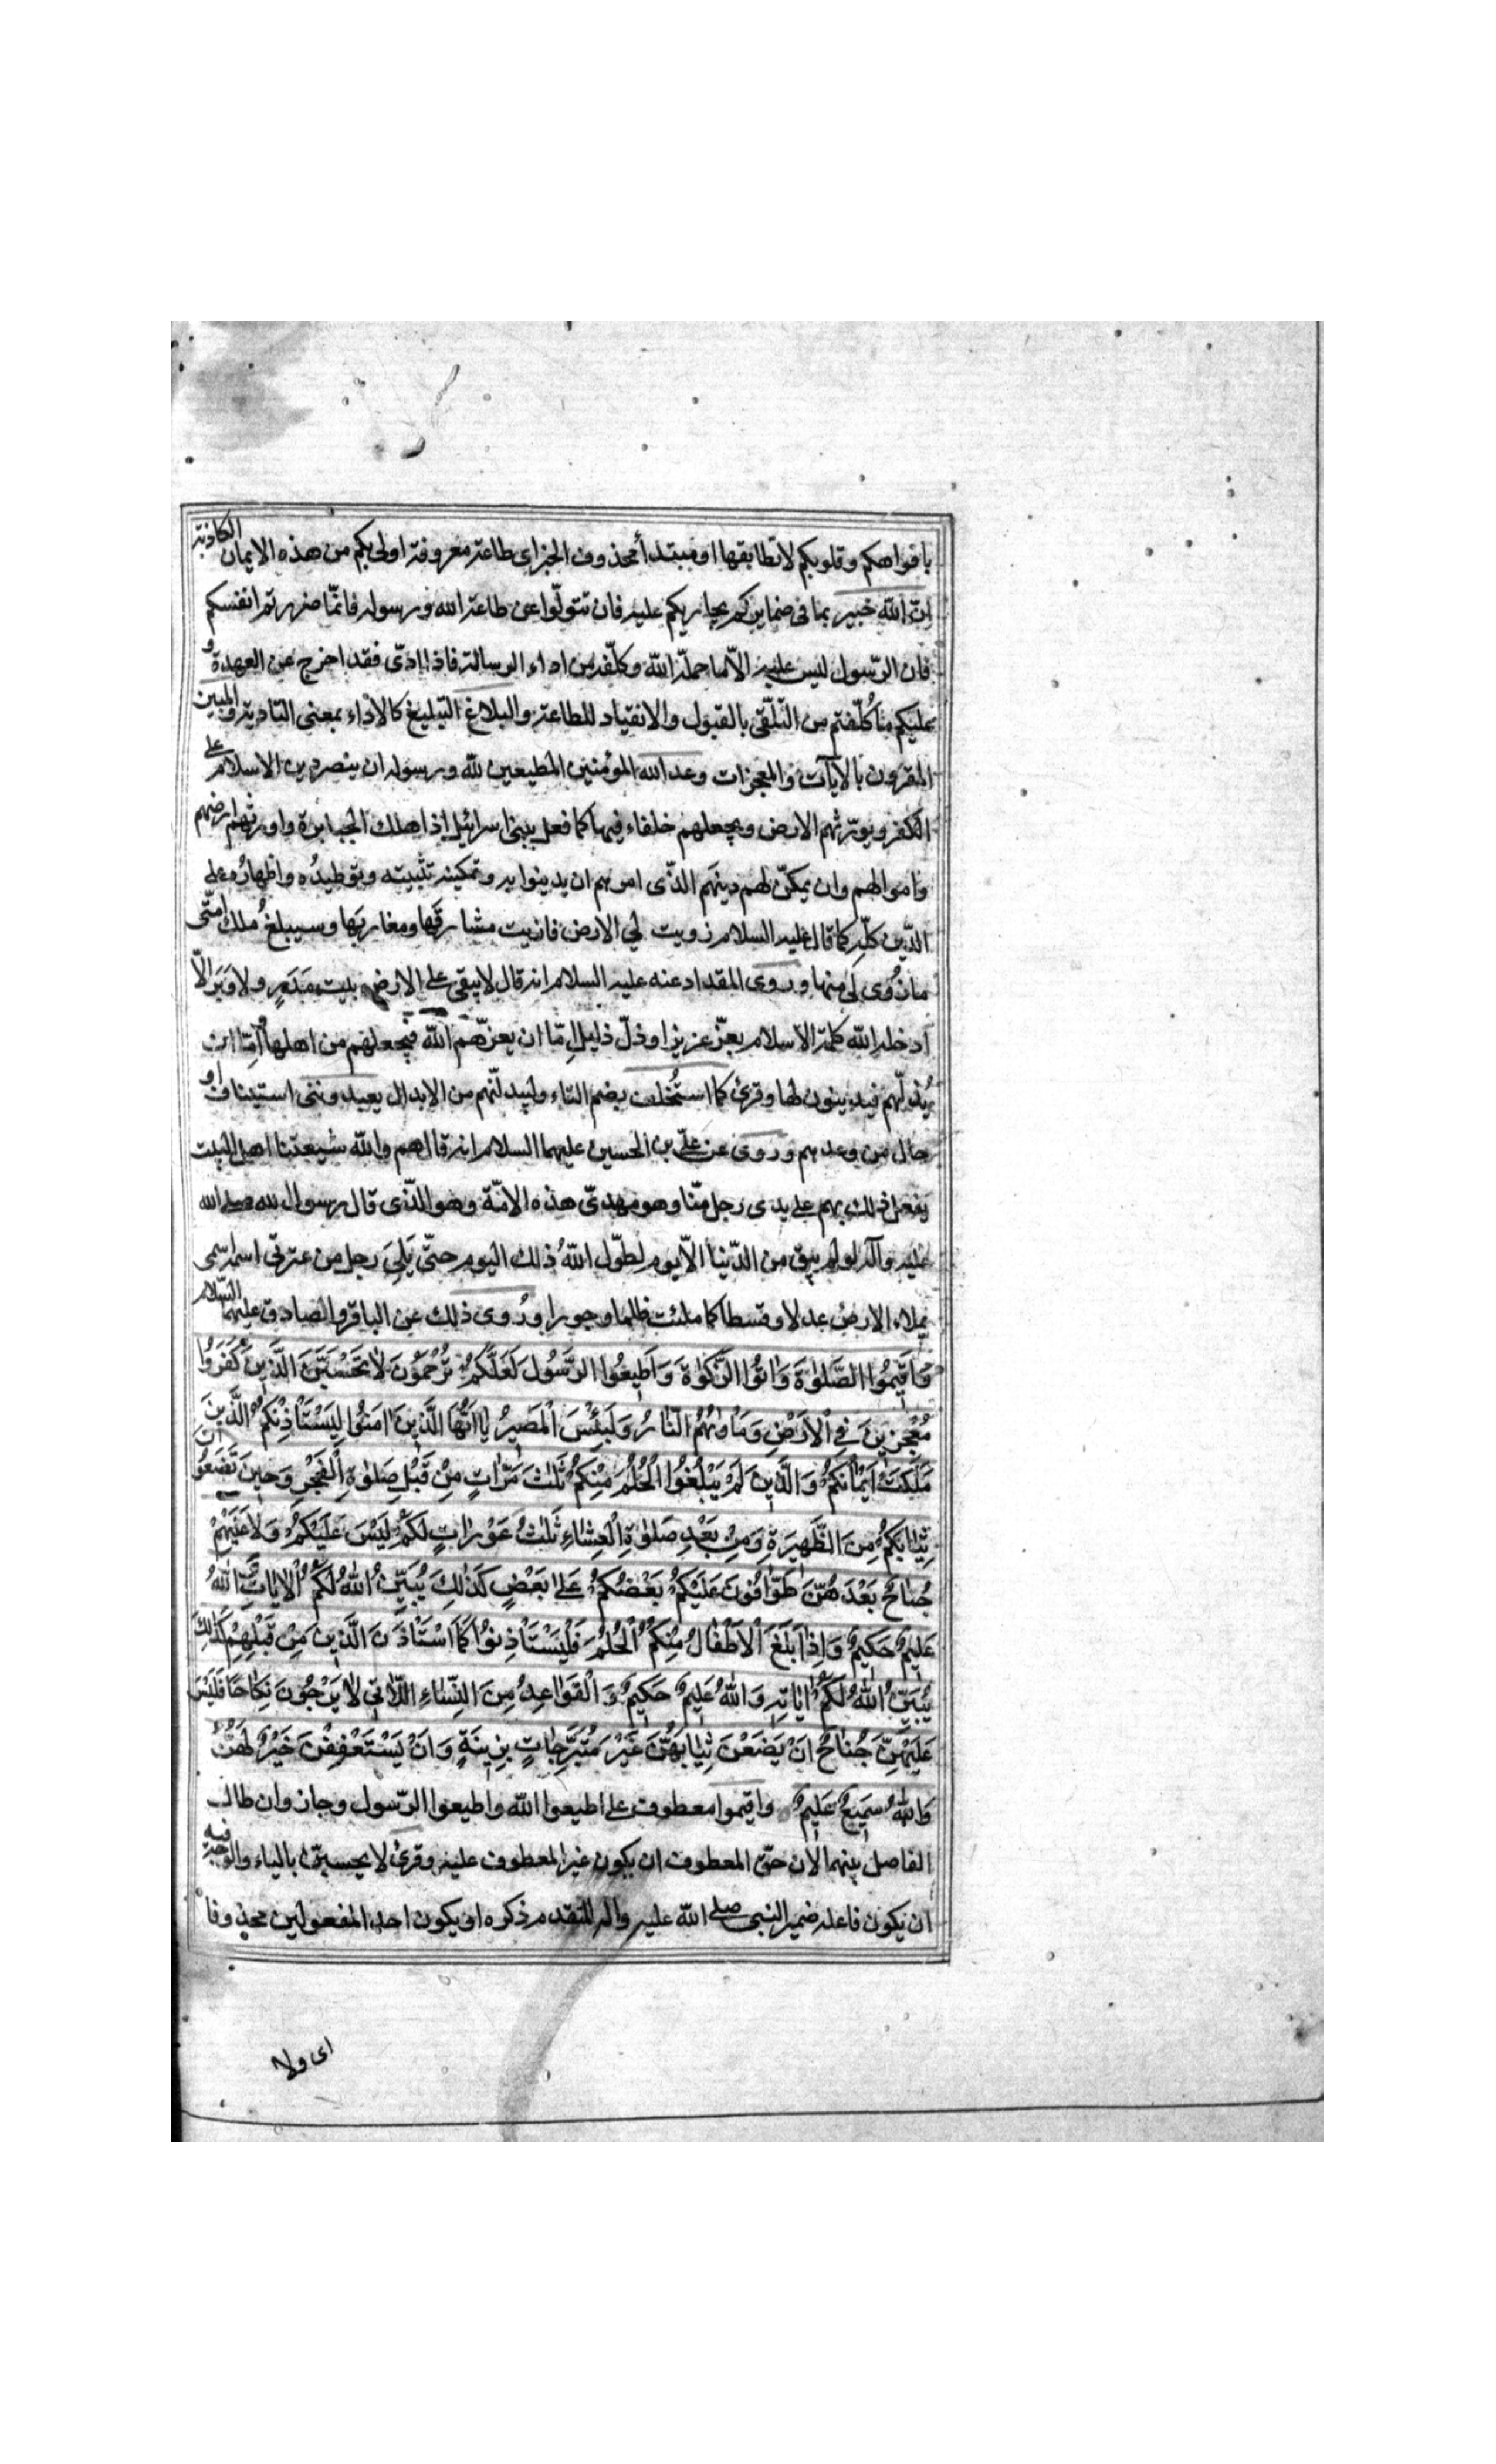 بافواهكم وقلوبكم لا تطابقها او مبتدأ محذوف الخبر اى طاعة معروفة اولى بكم من هذه الايمان الكاذبة
انّ الله خبير بما فى ضمايركم يجازيكم عليه فان تتولّوا عن طاعة الله ورسوله فانّما ضررتم انفسكم
فان الرّسول ليس عليه الّا ما حمله الله وكلّفه من اداء الرسالة فاذا ادّى فقد اخرج عن العهدة و
عليكم ما كُلّفتم من التّلقّى بالقبول والانقياد للطاعة والبلاغ التبليغ كالأداء بمعنى التادية والمبين
المقرون بالآيات والمعجزات وعد الله المؤمنين المطيعين لله ورسوله ان ينصر دين الاسلام على
الكفر ويورّثهم الارض ويجعلهم خلفاء فيها كما فعل ببنى اسرائيل اذ اهلك الجبابرة واورثهم ارضهم
واموالهم وان يمكّن لهم دينهم الذّى امرهم ان يدينوا به وتمكينه تثبيته وتوطيدُه واظهارُه على
الدّين كلّه كما قال عليه السلام زويت لى الارض فاريت مشارقَها ومغاربَها وسيبلغُ مُلك امتّى
ما زُوى لى منها وروى المقداد عنه عليه السلام انه قال لا يبقى على الارض بيت مَدَرٍ ولا وَبَر الّا
ادخله الله كلمة الاسلام بعزّ عزيز او ذلّ ذليل امّا ان يعزّهم الله فيجعلهم من اهلها وامّا ان
يُذلّهم فيدينون لها وقرئ كما استُخلف بضم التاء وليبدلنّهم من الابدال يعبدوننى استيناف او
حال من وعدهم وروى عن علىّ بن الحسين عليهما السلام انه قال هم والله شيعتنا اهل البيت
يفعل ذلك بهم على يدى رجل منّا وهو مهدىّ هذه الامّة وهو الذّى قال رسول الله صلى الله
عليه وآله لو لم يبق من الدّنيا الّا يوم لطوّل اللهُ ذلك اليوم حتّى يَلِىَ رجل من عترتى اسمه اسمى
يملاء الارض عدلا وقسطا كما ملئت ظلما وجورا ورُوى ذلك عن الباقر والصادق عليهما السّلام
وَاَقيمُوا الصَّلٰوةَ وَاٰتُوا الزَّكٰوةَ وَاَطيعُوا الرَّسُولَ لَعَلَّكُمْ تُرْحَمُونَ لاٰ تَحْسَبَنَّ الَّذينَ كَفَرُوا
مُعْجِزينَ فِى الْاَرْضِ وَمَأْوٰيهُمُ النّٰارُ وَلَبِئْسَ الْمَصيرُ يٰا اَيُّهَا الَّذينَ اٰمَنُوا لِيَسْتَأْذِنْكُمُ الَّذينَ
مَلَكَتْ اَيْمٰانُكُمْ وَالَّذينَ لَمْ يَبْلُغُوا الْحُلُمَ مِنْكُمْ ثَلٰثَ مَرّٰاتٍ مِنْ قَبْلِ صَلٰوةِ الْفَجْرِ وَحينَ تَضَعُونَ
ثِيٰابَكُمْ مِنَ الظَّهيرَةِ وَمِنْ بَعْدِ صَلٰوةِ الْعِشٰاءِ ثَلٰثُ عَوْرٰاتٍ لَكُمْ لَيْسَ عَلَيْكُمْ وَلاٰ عَلَيْهِمْ
جُنٰاحٌ بَعْدَهُنَّ طَوّٰافُونَ عَلَيْكُمْ بَعْضُكُمْ عَلىٰ بَعْضٍ كَذٰلِكَ يُبَيِّنُ اللهُ لَكُمُ الْاٰيٰاتِ وَاللهُ
عَليمٌ حَكيمٌ وَاِذٰا بَلَغَ الْاَطْفٰالُ مِنْكُمُ الْحُلُمَ فَلْيَسْتَأْذِنُوا كَمَا اسْتَأْذَنَ الَّذينَ مِنْ قَبْلِهِمْ كَذٰلِكَ
يُبَيِّنُ اللهُ لَكُمْ اٰيٰاتِهِ وَاللهُ عَليمٌ حَكيمٌ وَالْقَوٰاعِدُ مِنَ النِّسٰاءِ اللّٰاتى لاٰ يَرْجُونَ نِكٰاحًا فَلَيْسَ
عَلَيْهِنَّ جُنٰاحٌ اَنْ يَضَعْنَ ثِيٰابَهُنَّ غَيْرَ مُتَبَرِّجٰاتٍ بِزينَةٍ وَاَنْ يَسْتَعْفِفْنَ خَيْرٌ لَهُنَّ
وَاللهُ سَميعٌ عَليمٌ واقيموا معطوف على اطيعوا الله واطيعوا الرّسول وجاز وان طال
الفاصل بينهما لان حقّ المعطوف ان يكون غير المعطوف عليه وقرئ لا يحسبنّ بالياء والوجه فيه
ان يكون فاعله ضمير النبى صلى الله عليه واله لتقدم ذكره او يكون احد المفعولين محذوفا
اى ولا